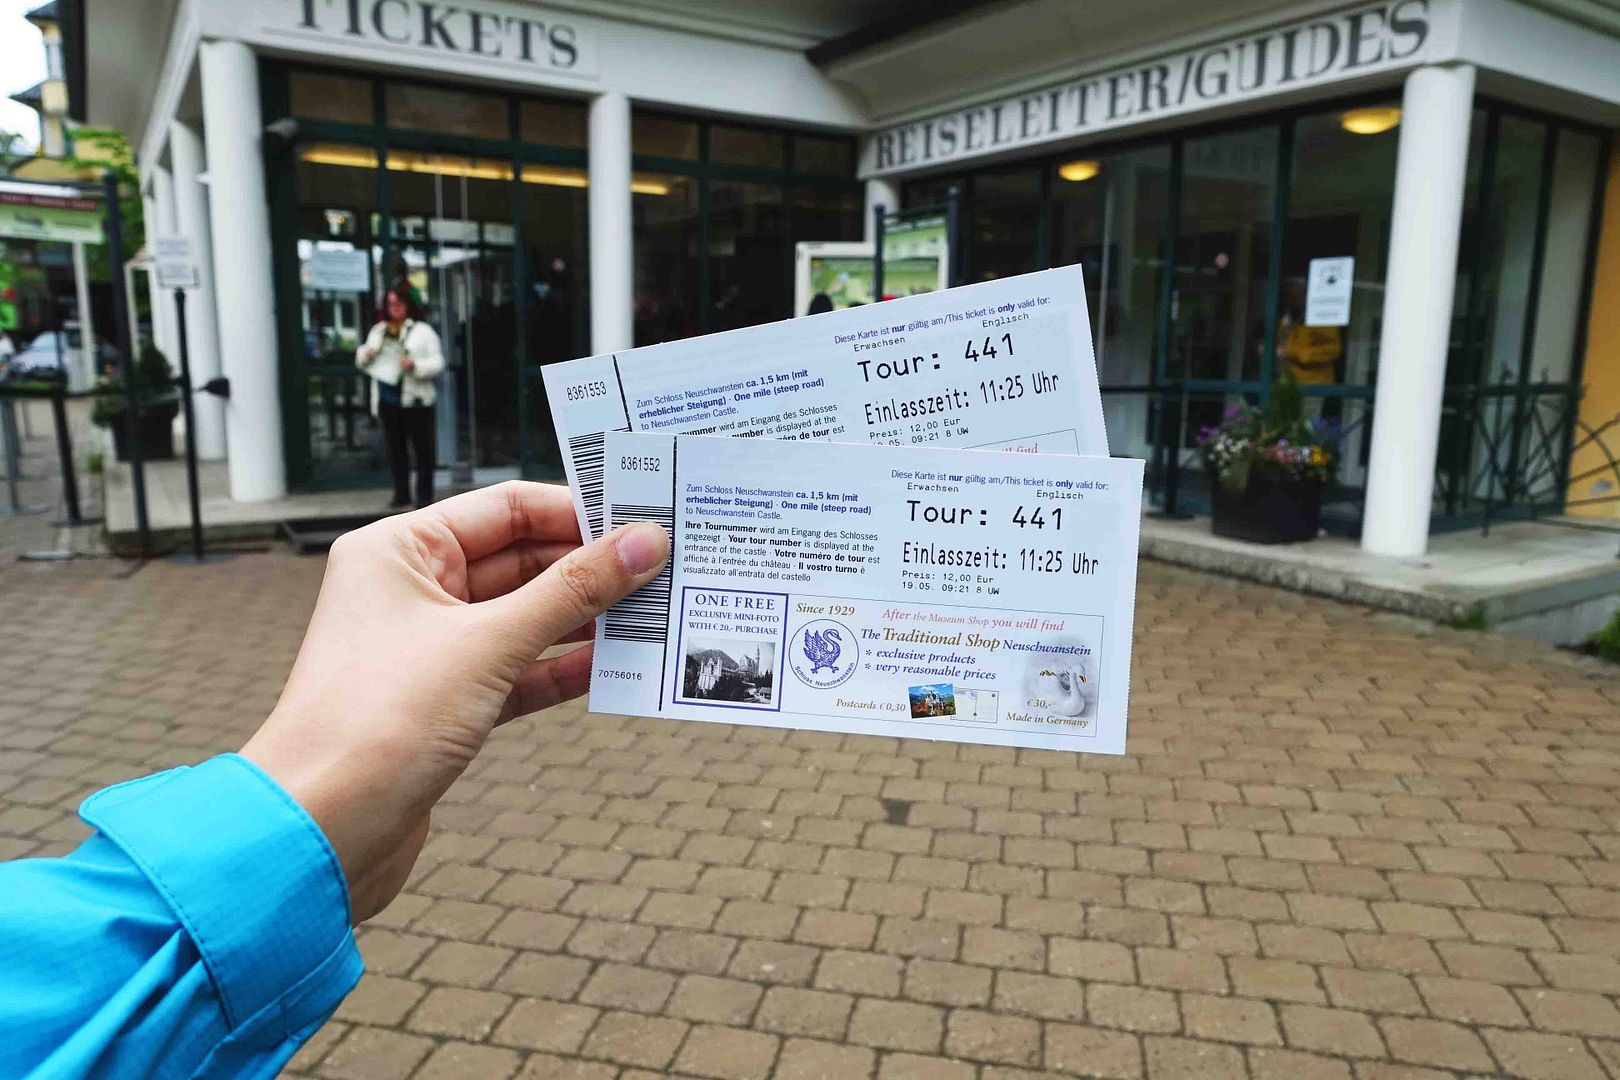 TICKETS
REISELEITER/GUIDES
8361553
Zum Schloss Neuschwanstein ca. 1,5 km (mit
erheblicher Steigung) · One mile (steep road)
to Neuschwanstein Castle.
nummer wird am Eingang des Schlosses
number is displayed at the
méro de tour est
Diese Karte ist nur gültig am/This ticket is only valid for:
Erwachsen Englisch
Tour: 441
Einlasszeit: 11:25 Uhr
Preis: 12,00 Eur
.05. 09:21 8 UW
find
8361552
Zum Schloss Neuschwanstein ca. 1,5 km (mit
erheblicher Steigung) · One mile (steep road)
to Neuschwanstein Castle.
Ihre Tournummer wird am Eingang des Schlosses
angezeigt · Your tour number is displayed at the
entrance of the castle · Votre numéro de tour est
affiché à l'entrée du château · Il vostro turno è
visualizzato all'entrata del castello
Diese Karte ist nur gültig am/This ticket is only valid for:
Erwachsen Englisch
Tour: 441
Einlasszeit: 11:25 Uhr
Preis: 12,00 Eur
19.05. 09:21 8 UW
70756016
ONE FREE
EXCLUSIVE MINI-FOTO
WITH € 20,- PURCHASE
Since 1929
Schloss Neuschwanstein
After the Museum Shop you will find
The Traditional Shop Neuschwanstein
* exclusive products
* very reasonable prices
Postcards € 0,30
€ 30,-
Made in Germany